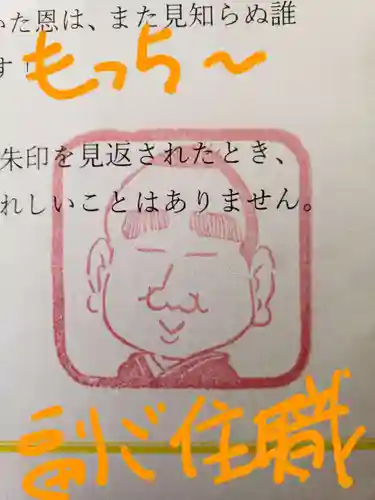 いた恩は、また見知らぬ誰
す！
もっち〜
朱印を見返されたとき、
れしいことはありません。
副ご住職